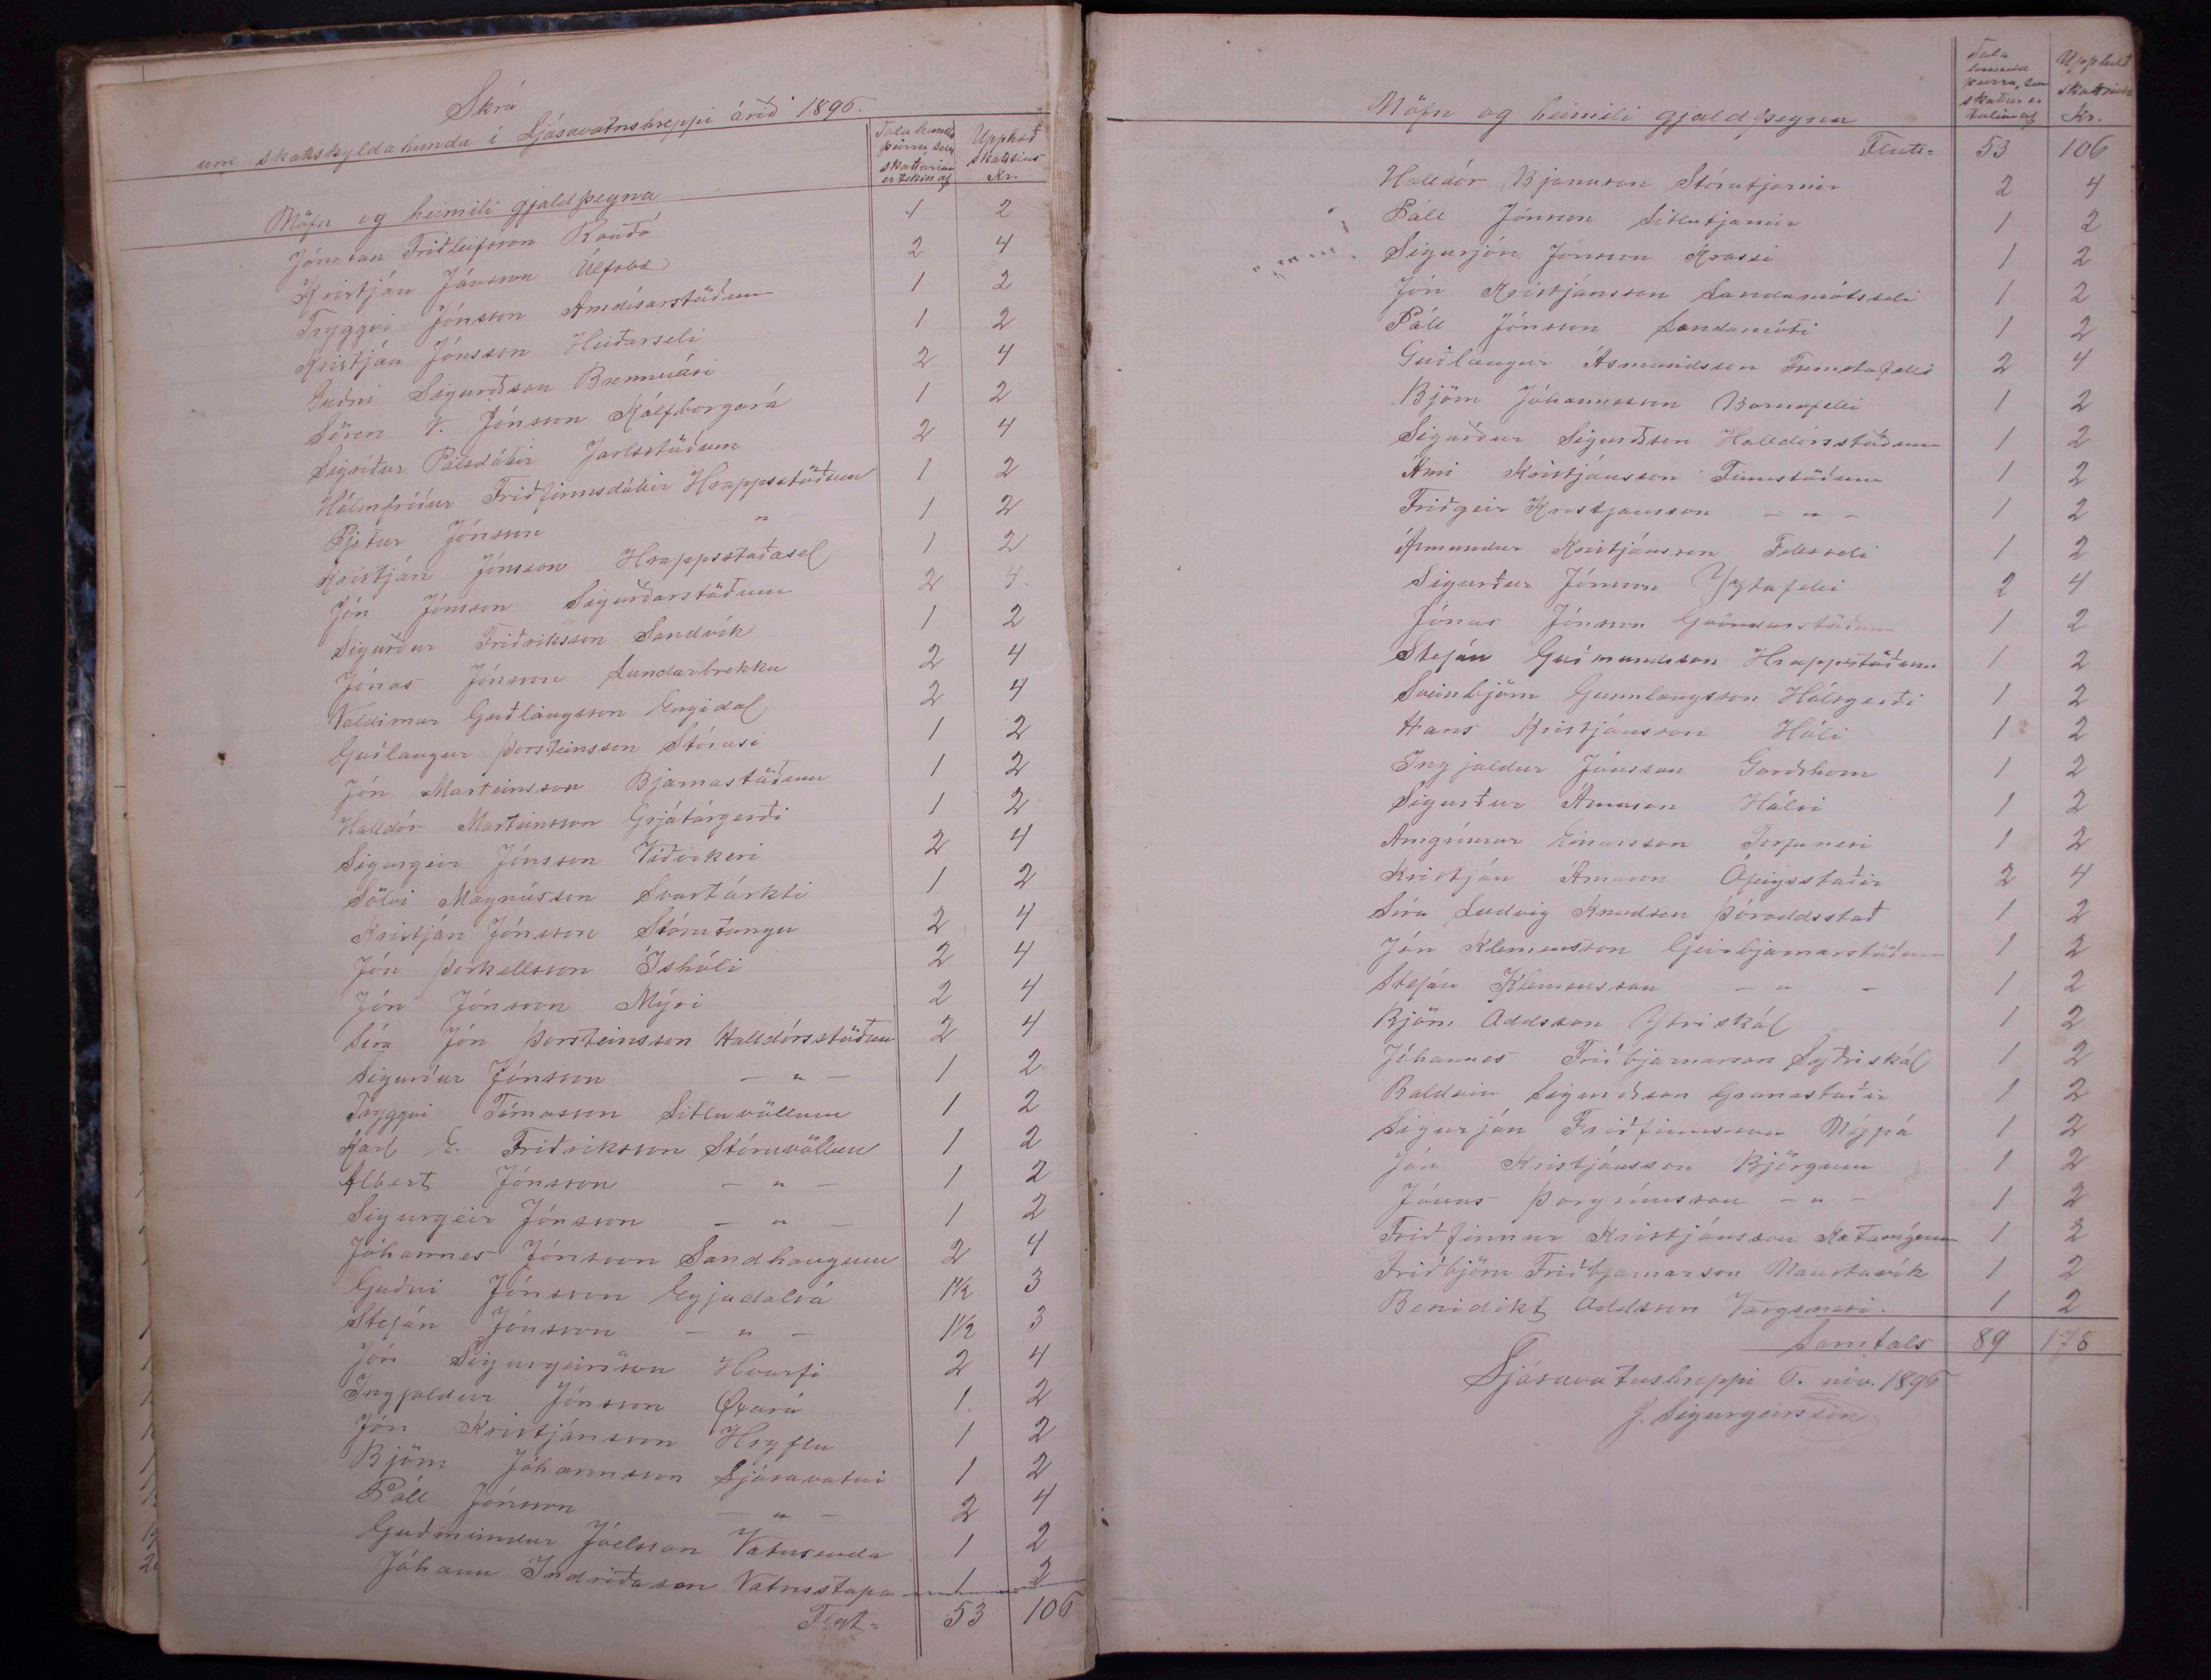 Skrá
um skattskylda hunda í Ljósavatnshreppi árið 1896.
Nöfn og heimili gjaldþegna
Tala hunda þeirra, sem skatturinn er tekin af
Upphæð skattsins Kr.
Jónatan Friðleifsson Rauðá 1 2
Kristján Jónsson Úlfsbæ 2 4
Tryggvi Jónsson Arndísarstöðum 1 2
Kristján Jónsson Heiðarseli 1 2
Guðni Sigurðsson Brennuási 2 4
Sören V. Jónsson Kálfborgará 1 2
Sigríður Pálsdóttir Jarlsstöðum 2 4
Hólmfríður Friðfinnsdóttir Hrappsstöðum 1 2
Pjetur Jónsson " 1 2
Kristján Jónsson Hrappsstaðasel 1 2
Jón Jónsson Sigurðarstöðum 2 4
Sigurður Friðriksson Sandvík 1 2
Jónas Jónsson Lundarbrekku 2 4
Valdimar Guðlaugsson Engidal 2 4
Guðlaugur Þorsteinsson Stórási 1 2
Jón Marteinsson Bjarnastöðum 1 2
Halldór Marteinsson Grjótárgerði 1 2
Sigurgeir Jónsson Víðirkeri 2 4
Sölvi Magnússon Svartárkti 1 2
Kristján Jónsson Stórutungu 2 4
Jón Þorkellsson Íshóli 2 4
Jón Jónsson Mýri 2 4
Síra Jón Þorsteinsson Halldórsstöðum 2 4
Sigurður Jónsson – " – 1 2
Tryggvi Tómasson Litluvöllum 1 2
Karl E. Friðriksson Stóruvöllum 1 2
Albert Jónsson – " – 1 2
Sigurgeir Jónsson – " – 1 2
Jóhannes Jónsson Sandhaugum 2 4
Guðni Jónsson Eyjadalsá 1½ 3
Stefán Jónsson – " – 1½ 3
Jón Sigurgeirsson Hvarfi 2 4
Ingjaldur Jónsson Øxará 1. 2
Jón Kristjánsson Hryflu 1 2
Björn Jóhannsson Ljósavatni 1 2
Páll Jónsson – " – 2 4
Guðmundur Jóelsson Vatnsenda 1 2
Jóhann Indriðason Vatnsstapa 1 2
Flut= 53 106
Nöfn og heimili gjaldþegna
Tala hunda þeirra, sem skattur er tekin af
Upphæð skattsins Kr.
Flutt= 53 106
Halldór Bjarnason Stórutjarnir 2 4
Páll Jónsson Litlutjarnir 1 2
Sigurjón Jónsson Krossi 1 2
Jón Kristjánsson Landamótsseli 1 2
Páll Jónsson Landamóti 1 2
Guðlaugur Ásmundsson Fremstafelli 2 4
Björn Jóhannesson Barnafelli 1 2
Sigurður Sigurðsson Halldórsstöðum 1 2
Árni Kristjánsson Finnstöðum 1 2
Friðgeir Kristjansson – " – 1 2
Ásmundur Kristjánsson Fellsseli 1 2
Sigurður Jónsson Yztafelli 2 4
Jónas Jónsson Gvöndarstöðum 1 2
Stefán Guðmundsson Hrappstöðum 1 2
Sveinbjörn Gunnlaugsson Hálsgerði 1 2
Hans Kristjánsson Hóli 1 2
Ingjaldur Jónsson Garðshorn 1 2
Sigurður Árnason Hálsi 1 2
Arngrímur Einarsson Torfunesi 1 2
Kristján Árnason Ófeigsstaðir 2 4
Síra Ludvig Knudsen Þóroddsstað 1 2
Jón Klemensson Geirbjarnarstöðum 1 2
Stefán Klemensson – " – 1 2
Björn Oddsson Ytriskál 1 2
Jóhannes Friðbjarnarson Syðriskál 1 2
Baldvin Sigurðsson Granastaðir 1 2
Sigurján Friðfinnsson Nýpá 1 2
Jón Kristjánsson Björgum 1 2
Jónas Þorgrímsson – " – 1 2
Friðfinnur Kristjánsson Kotamýrum 1 2
Friðbjörn Friðbjarnarson Naustavík 1 2
Benidikt Oddsson Vargsnesi. 1 2
Samtals 89 178
Ljósavatnshreppi 6. nóv. 1896
J. Sigurgeirsson